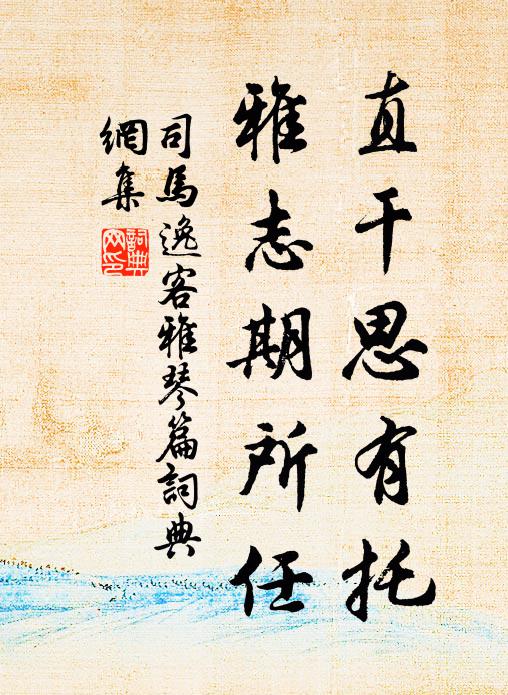 直干思有托
雅志期所任
司馬逸客雅琴篇詞典
網集
詞典
网印